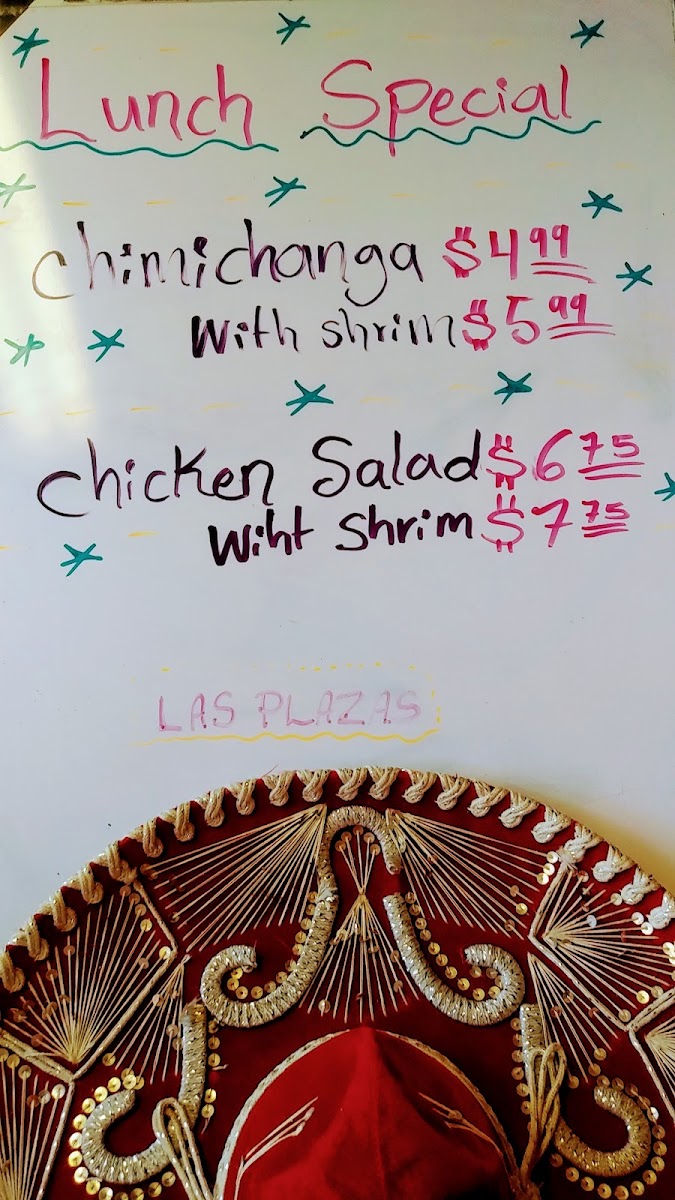 Lunch Special
chimichanga $4 99
with shrim $5 99
chicken Salad $6 75
wiht shrim $7 75
LAS PLAZAS